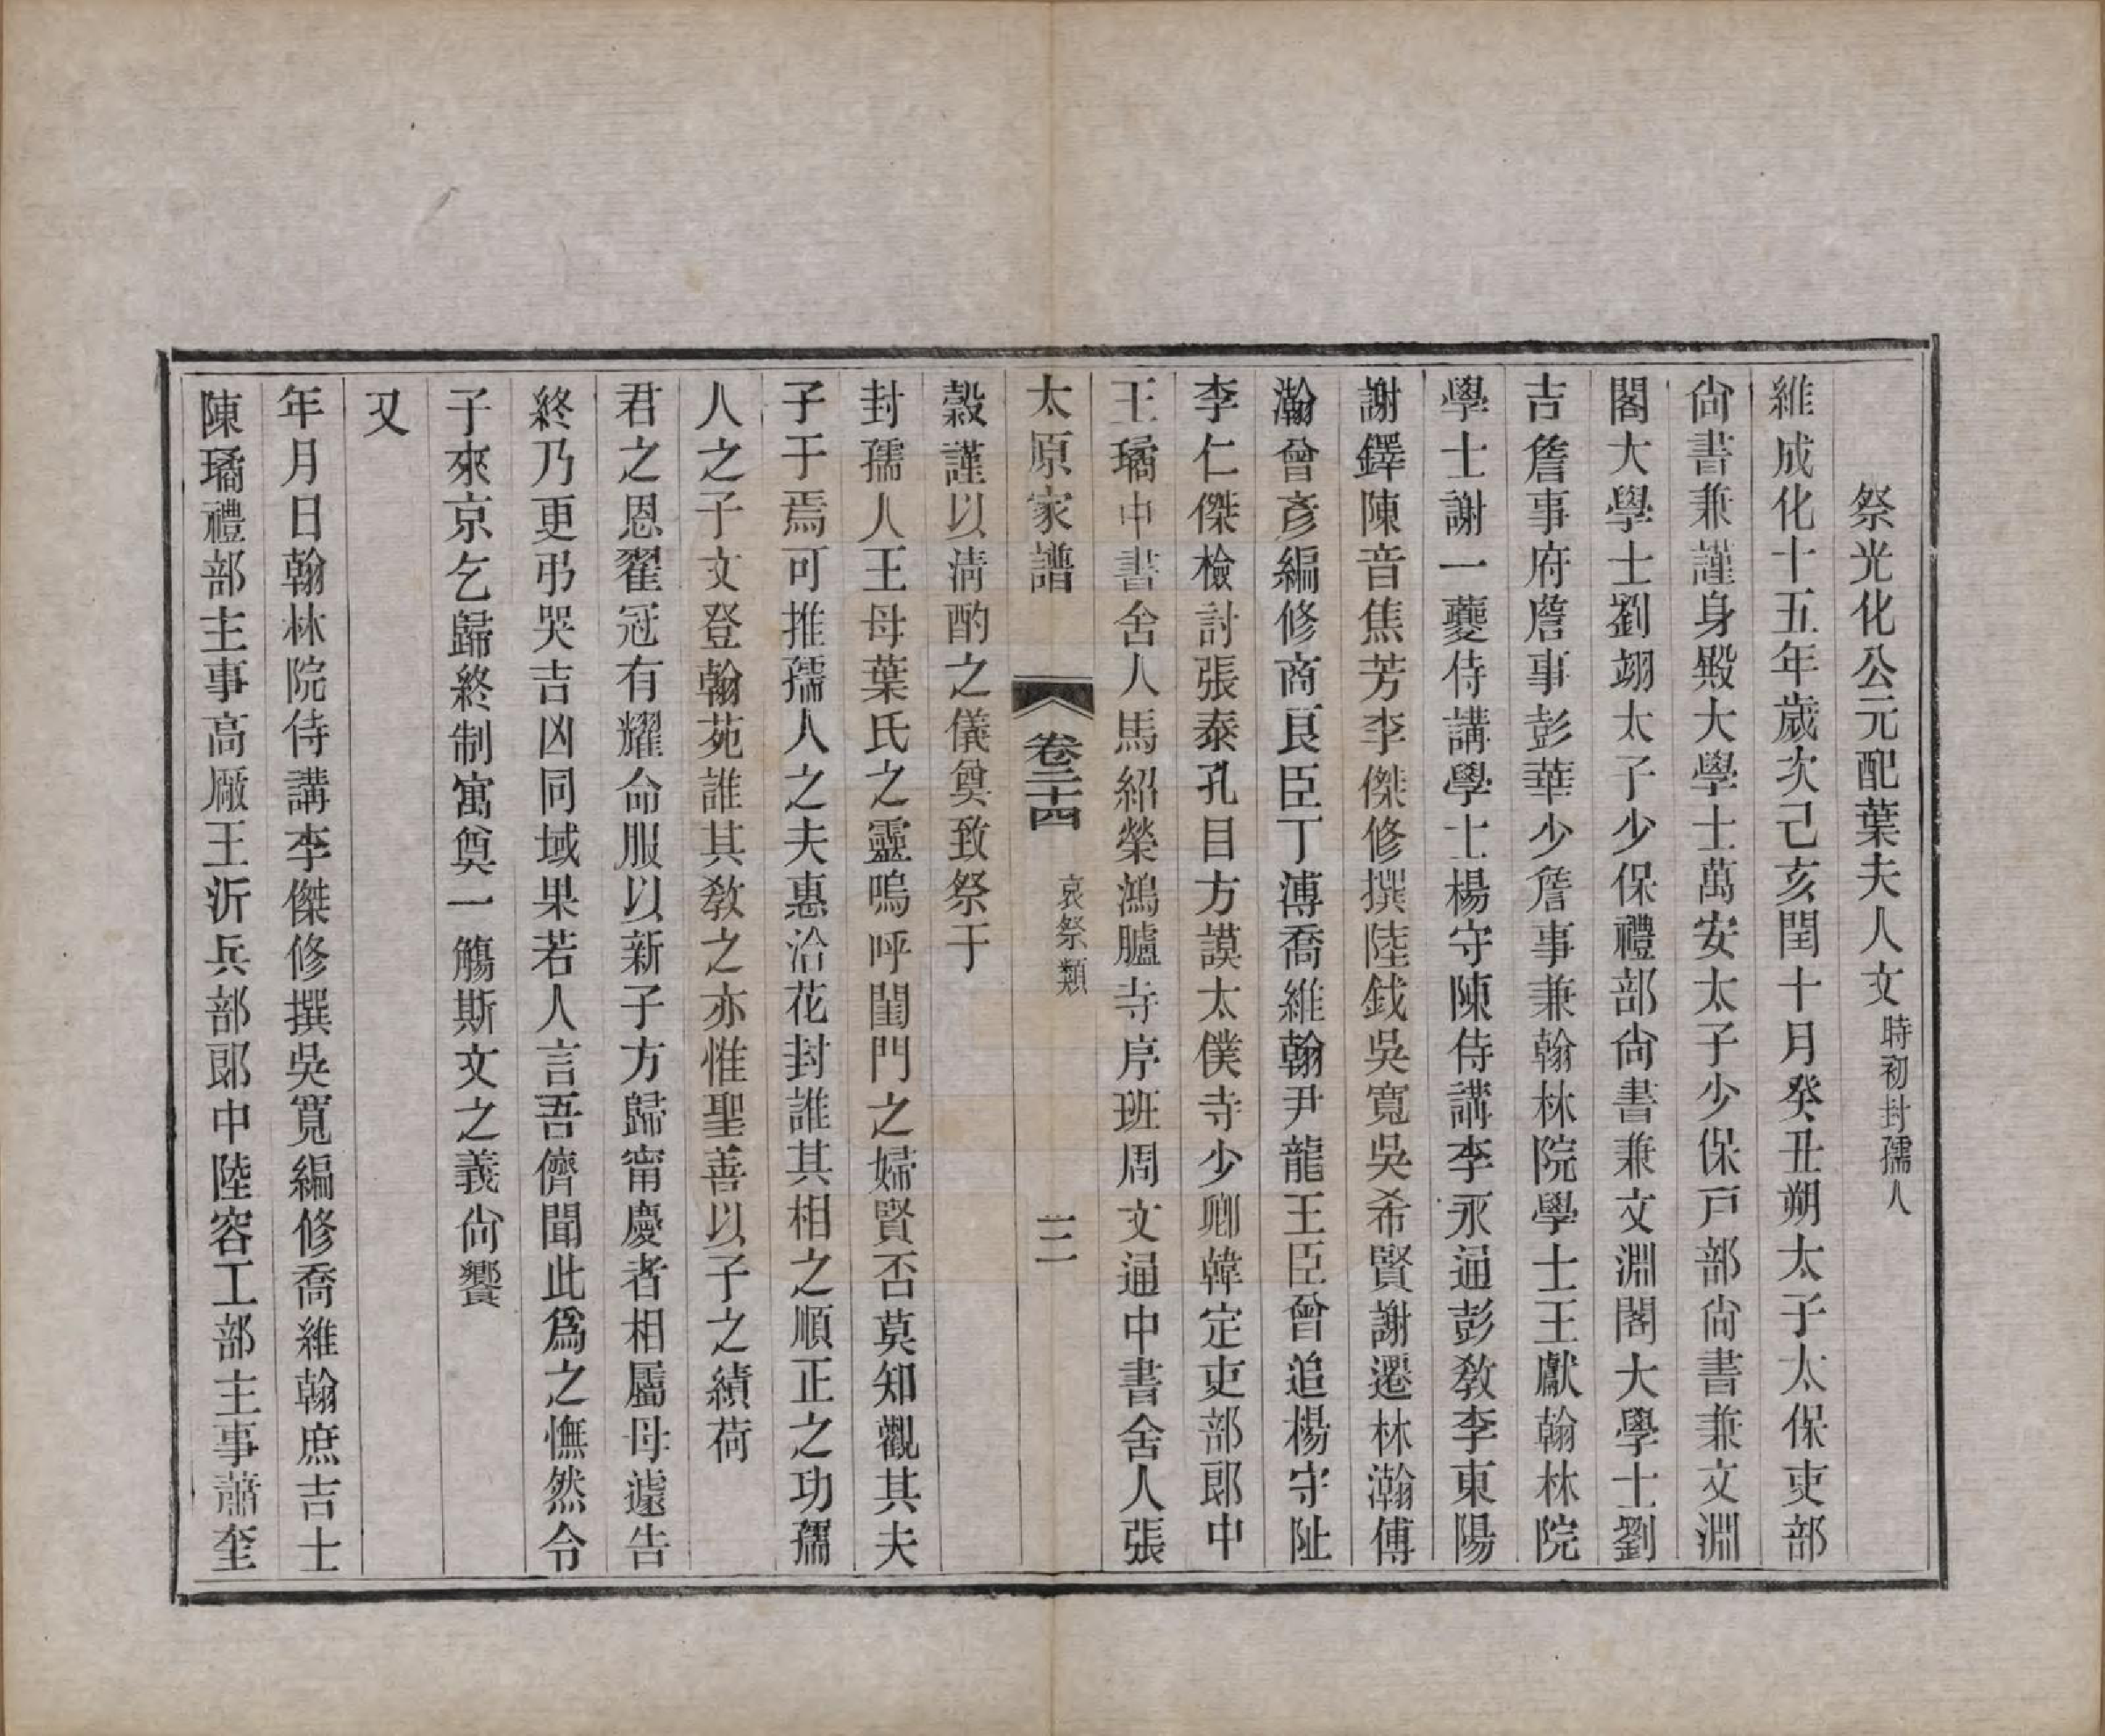 祭光化公元配葉夫人文時初封孺人
維成化十五年歲次己亥閏十月癸丑朔太子太保吏部
尙書兼謹身殿大學士萬安太子少保戸部尙書兼文淵
閣大學士劉翊太子少保禮部尙書兼文淵閣大學士劉
吉詹事府詹事彭華少詹事兼翰林院學士王獻翰林院
學士謝一夔侍講學士楊守陳侍講李永通彭敎李東陽
謝鐸陳音焦芳李傑修撰陸釴吳寬吳希賢謝遷林瀚傅
瀚曾彥編修商良臣丁溥喬維翰尹龍王臣曾追楊守阯
李仁傑檢討張泰孔目方謨太僕寺少卿韓定吏部郎中
王璚中書舍人馬紹榮鴻臚寺序班周文通中書舍人張
太原家譜 卷二十四 哀祭類 三
穀謹以淸酌之儀奠致祭于
封孺人王母葉氏之靈嗚呼閨門之婦賢否莫知觀其夫
子于焉可推孺人之夫惠洽花封誰其相之順正之功孺
人之子文登翰苑誰其敎之亦惟聖善以子之績荷
君之恩翟冠有耀命服以新子方歸甯慶者相屬母遽告
終乃更弔哭吉凶同域果若人言吾儕聞此爲之憮然令
子來京乞歸終制寓奠一觴斯文之義尙饗
又
年月日翰林院侍講李傑修撰吳寬編修喬維翰庶吉士
陳璚禮部主事高厰王沂兵部郎中陸容工部主事蕭奎